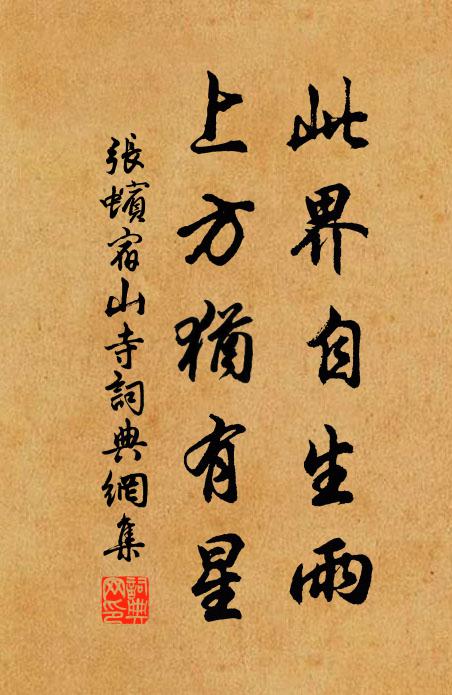 此界自生雨
上方猶有星
張蠙宿山寺詞典網集
詞典网印